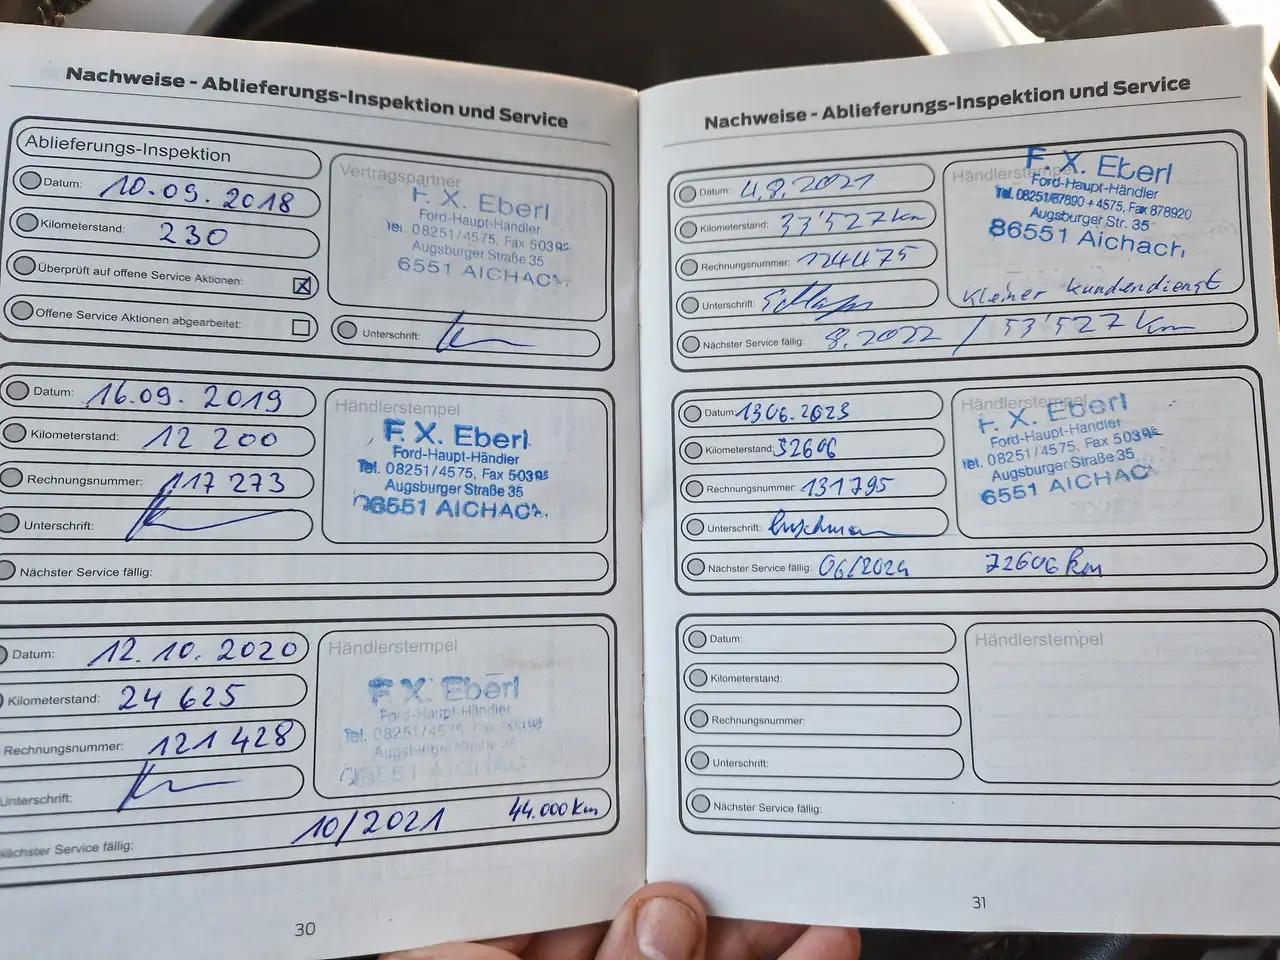 Nachweise - Ablieferungs-Inspektion und Service
Ablieferungs-Inspektion
Datum: 10.09.2018
Kilometerstand: 230
Überprüft auf offene Service Aktionen: ☒
Offene Service Aktionen abgearbeitet: ☐
Vertragspartner
F. X. Eberl
Ford-Haupt-Händler
Tel. 08251/4575, Fax 50394
Augsburger Straße 35
6551 AICHACH
Unterschrift:
Datum: 16.09. 2019
Kilometerstand: 12 200
Rechnungsnummer: 117 273
Unterschrift:
Nächster Service fällig:
Händlerstempel
F. X. Eberl
Ford-Haupt-Händler
Tel. 08251/4575, Fax 50394
Augsburger Straße 35
6551 AICHACH
Datum: 12.10.2020
Kilometerstand: 24 625
Rechnungsnummer: 121 428
Unterschrift:
Nächster Service fällig: 10/2021 44.000 km
Händlerstempel
F. X. Eberl
Ford-Haupt-Händler
Tel. 08251/4575
Augsburger Straße 35
6551 AICHACH
30
Nachweise - Ablieferungs-Inspektion und Service
Datum: 4.8.2021
Kilometerstand: 33'527 km
Rechnungsnummer: 124475
Unterschrift:
Nächster Service fällig: 8.2022 / 53'527 km
Händlerstempel
F. X. Eberl
Ford-Haupt-Händler
Tel. 08251/87890 + 4575, Fax 878920
Augsburger Str. 35
86551 Aichach
Kleiner Kundendienst
Datum: 13.06.2023
Kilometerstand: 52606
Rechnungsnummer: 131795
Unterschrift:
Nächster Service fällig: 06/2024 72606 km
Händlerstempel
F. X. Eberl
Ford-Haupt-Händler
Tel. 08251/4575, Fax 50394
Augsburger Straße 35
6551 AICHACH
Datum:
Kilometerstand:
Rechnungsnummer:
Unterschrift:
Nächster Service fällig:
Händlerstempel
31